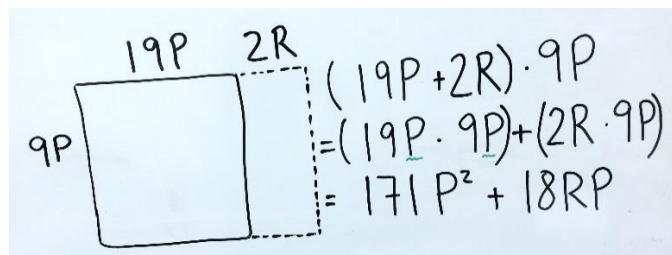 19P 2R
9P
(19P+2R)·9P
=(19P·9P)+(2R·9P)
= 171P² + 18RP